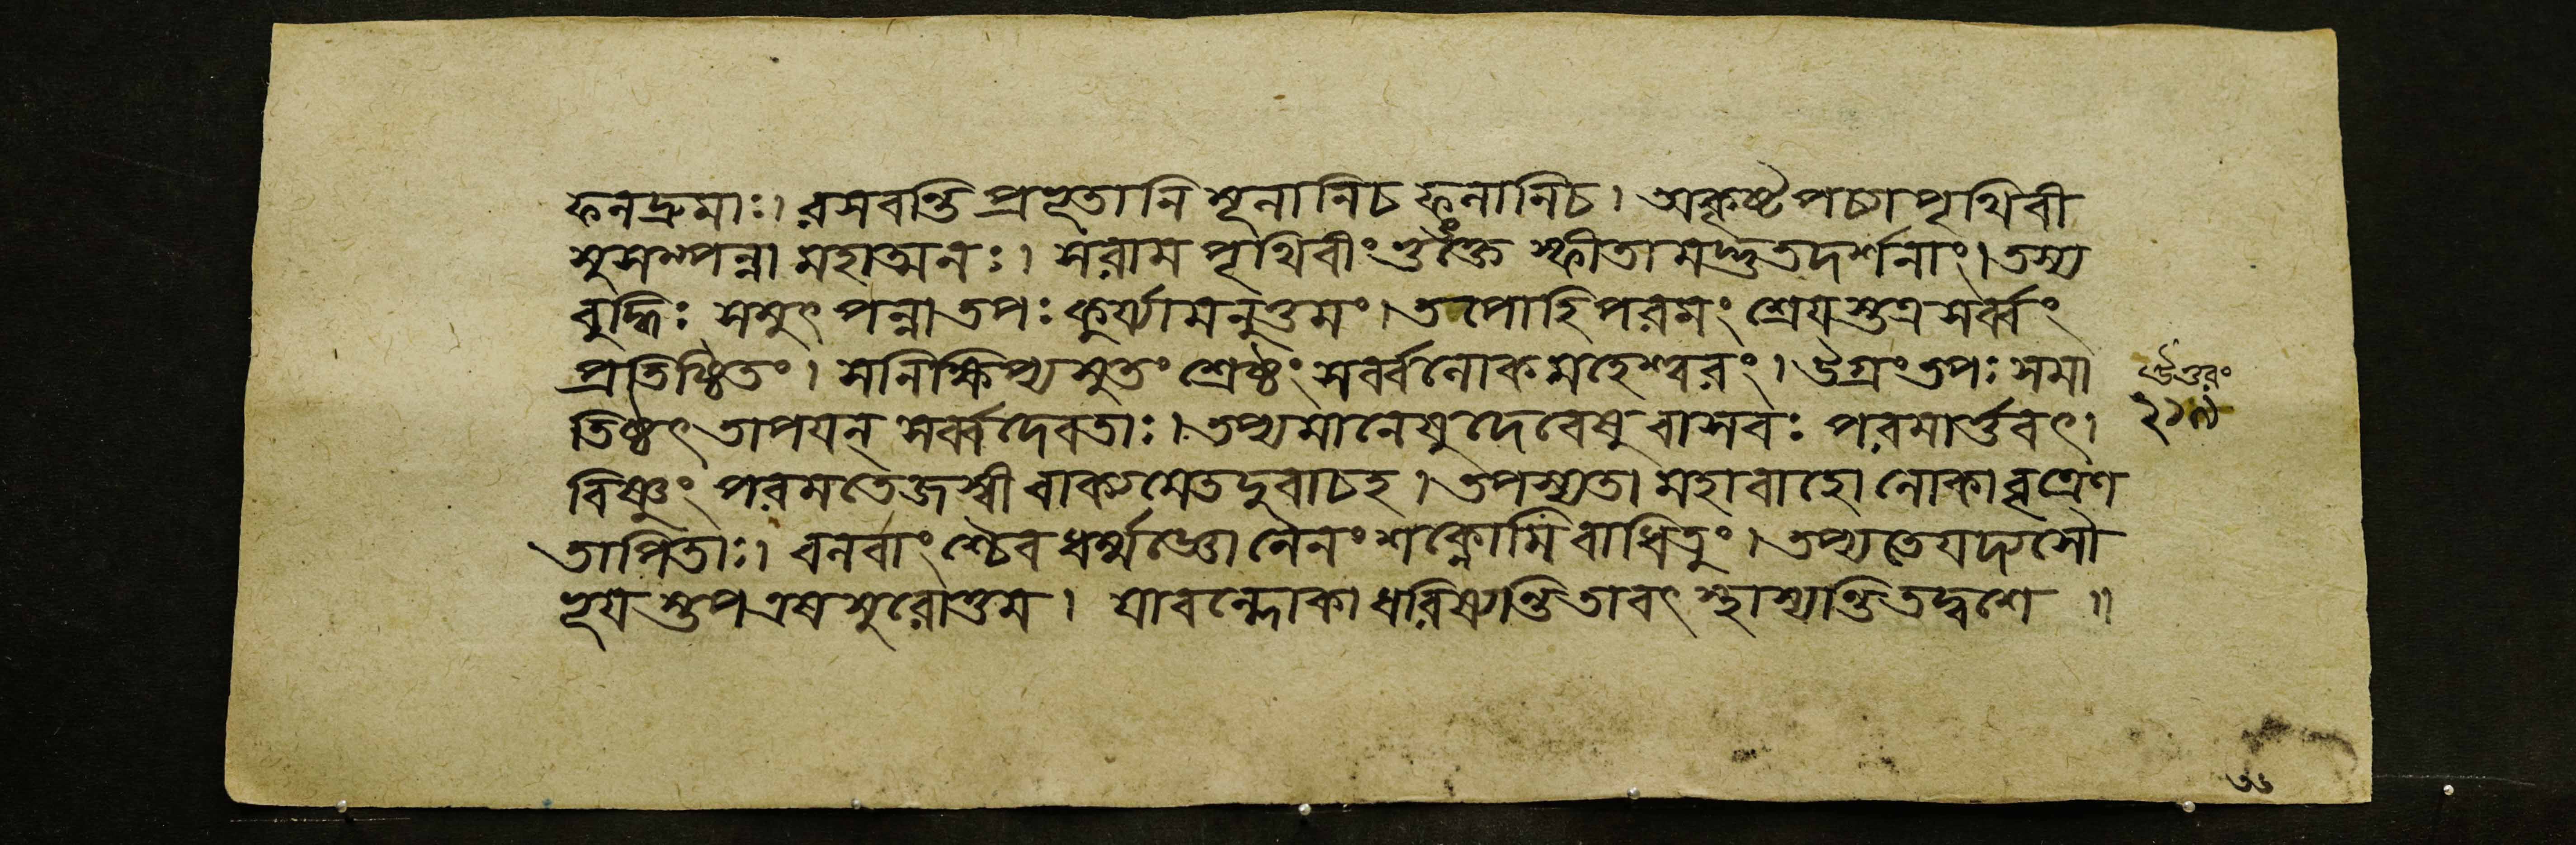 ফলদ্রুমাঃ। রসবন্তি প্রভূতানি মূলানিচ ফলানিচ। অকৃষ্টপচ্যা পৃথিবী
সুসম্পন্না মহাত্মনঃ। স রাম পৃথিবীং ভুংক্তে স্ফীতামদ্ভুতদর্শনাং। তস্য
বুদ্ধিঃ সমুৎপন্না তপঃ কুর্য্যামনুত্তমং। তপোহি পরমং শ্রেয়স্তত্র সর্ব্বং
প্রতিষ্ঠিতং। সনিক্ষিপ্য সুতং শ্রেষ্ঠং সর্ব্বলোকমহেশ্বরং। উগ্রং তপঃ সমা
তিষ্ঠৎ তাপয়ন্ সর্ব্বদেবতাঃ। তপ্যমানেষু দেবেষু বাসবঃ পরমার্ত্তবৎ।
বিষ্ণুং পরমতেজস্বী বাক্যমেতদুবাচহ। তপস্যতা মহাবাহো লোকা বৃত্রেণ
তাপিতাঃ। বলবাংশ্চৈব ধর্ম্মজ্ঞো নৈনং শক্নোমি বাধিতুং। তপ্যতে যদ্যসৌ
ভূয়স্তপ এষ সুরোত্তম। যাবল্লোকা ধরিষ্যন্তি তাবৎ স্থাস্যন্তি তদ্বশে॥
উত্তরং
২১৯
৩৬